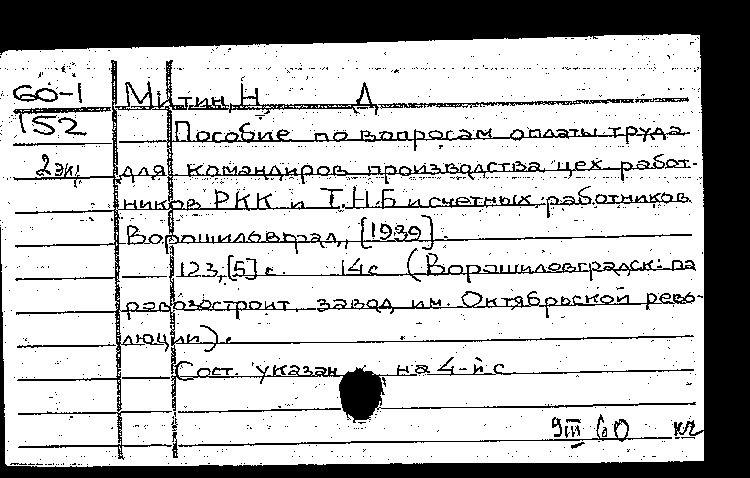 60-1 Митин, Н. Д.
152 Пособие по вопросам оплаты труда
2 экз. для командиров производства, цех. работ-
ников РКК и Т.Н.Б и счетных работников
Ворошиловград, [1939].
123, [5] с. 14с (Ворошиловградск. па
ровозостроит. завод им. Октябрьской рево-
люции).
Сост. указан на 4-й с
9 III 60 кг